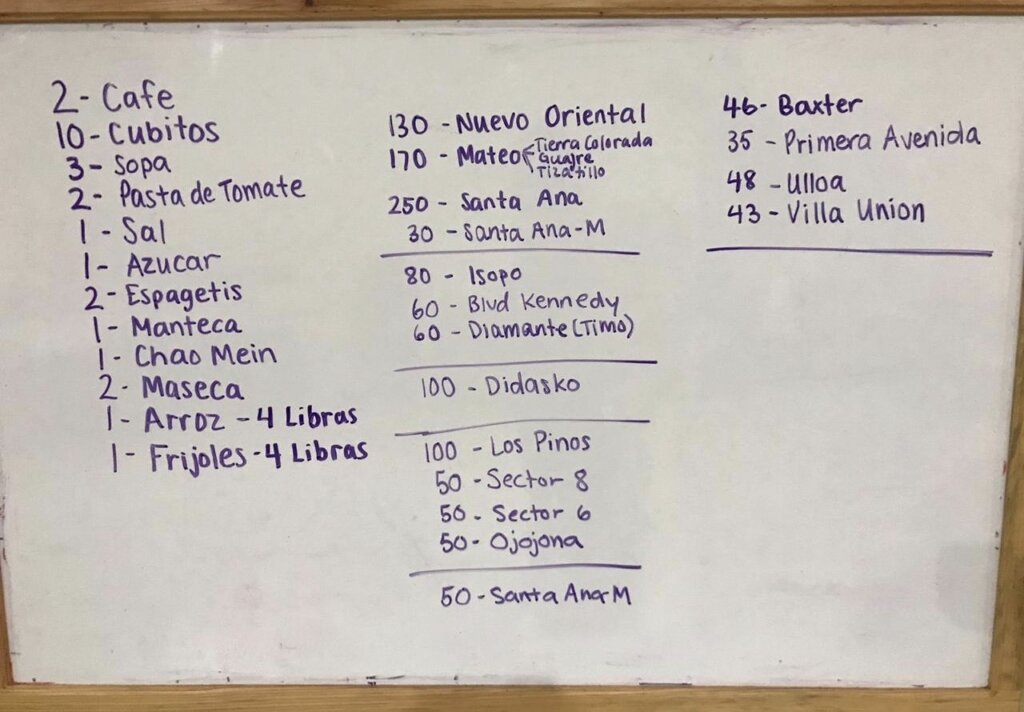 2- Cafe
10- Cubitos
3- Sopa
2- Pasta de Tomate
1- Sal
1- Azucar
2- Espagetis
1- Manteca
1- Chao Mein
2- Maseca
1- Arroz - 4 Libras
1- Frijoles - 4 Libras
130 - Nuevo Oriental
170 - Mateo < Tierra Colorada
Guajre
Tizatillo
250 - Santa Ana
30 - Santa Ana-M
80 - Isopo
60 - Blvd Kennedy
60 - Diamante (Timo)
100 - Didasko
100 - Los Pinos
50 - Sector 8
50 - Sector 6
50 - Ojojona
50 - Santa Ana-M
46- Baxter
35 - Primera Avenida
48 - Ulloa
43 - Villa Union